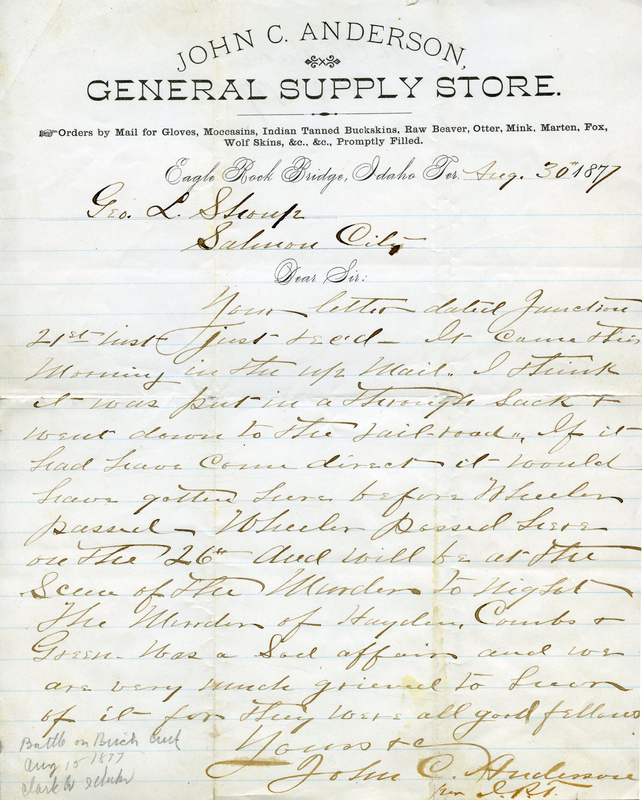 JOHN C. ANDERSON,
GENERAL SUPPLY STORE.
☞Orders by Mail for Gloves, Moccasins, Indian Tanned Buckskins, Raw Beaver, Otter, Mink, Marten, Fox,
Wolf Skins, &c., &c., Promptly Filled.
Eagle Rock Bridge, Idaho Ter. Aug. 30th 1877
Geo. L. Shoup
Salmon City
Dear Sir:
Your letter dated Junction
21st inst just recd - It came this
Morning in the up Mail. I think
it was put in a through Sack &
went down to the rail-road. If it
had have come direct it would
have gotten here before Wheeler
passed - Wheeler passed here
on the 26th and will be at the
Scene of the Murder to night
The Murder of Hayden, Combs &
Green. Was a Sad affair and we
are very much grieved to hear
of it for they were all good fellows
Yours &c
John C. Anderson
per
Battle on Birch Creek
Aug 15 1877
Clark